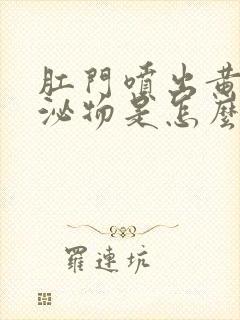 肛門噴出黃
泌物是怎麼
羅連坑